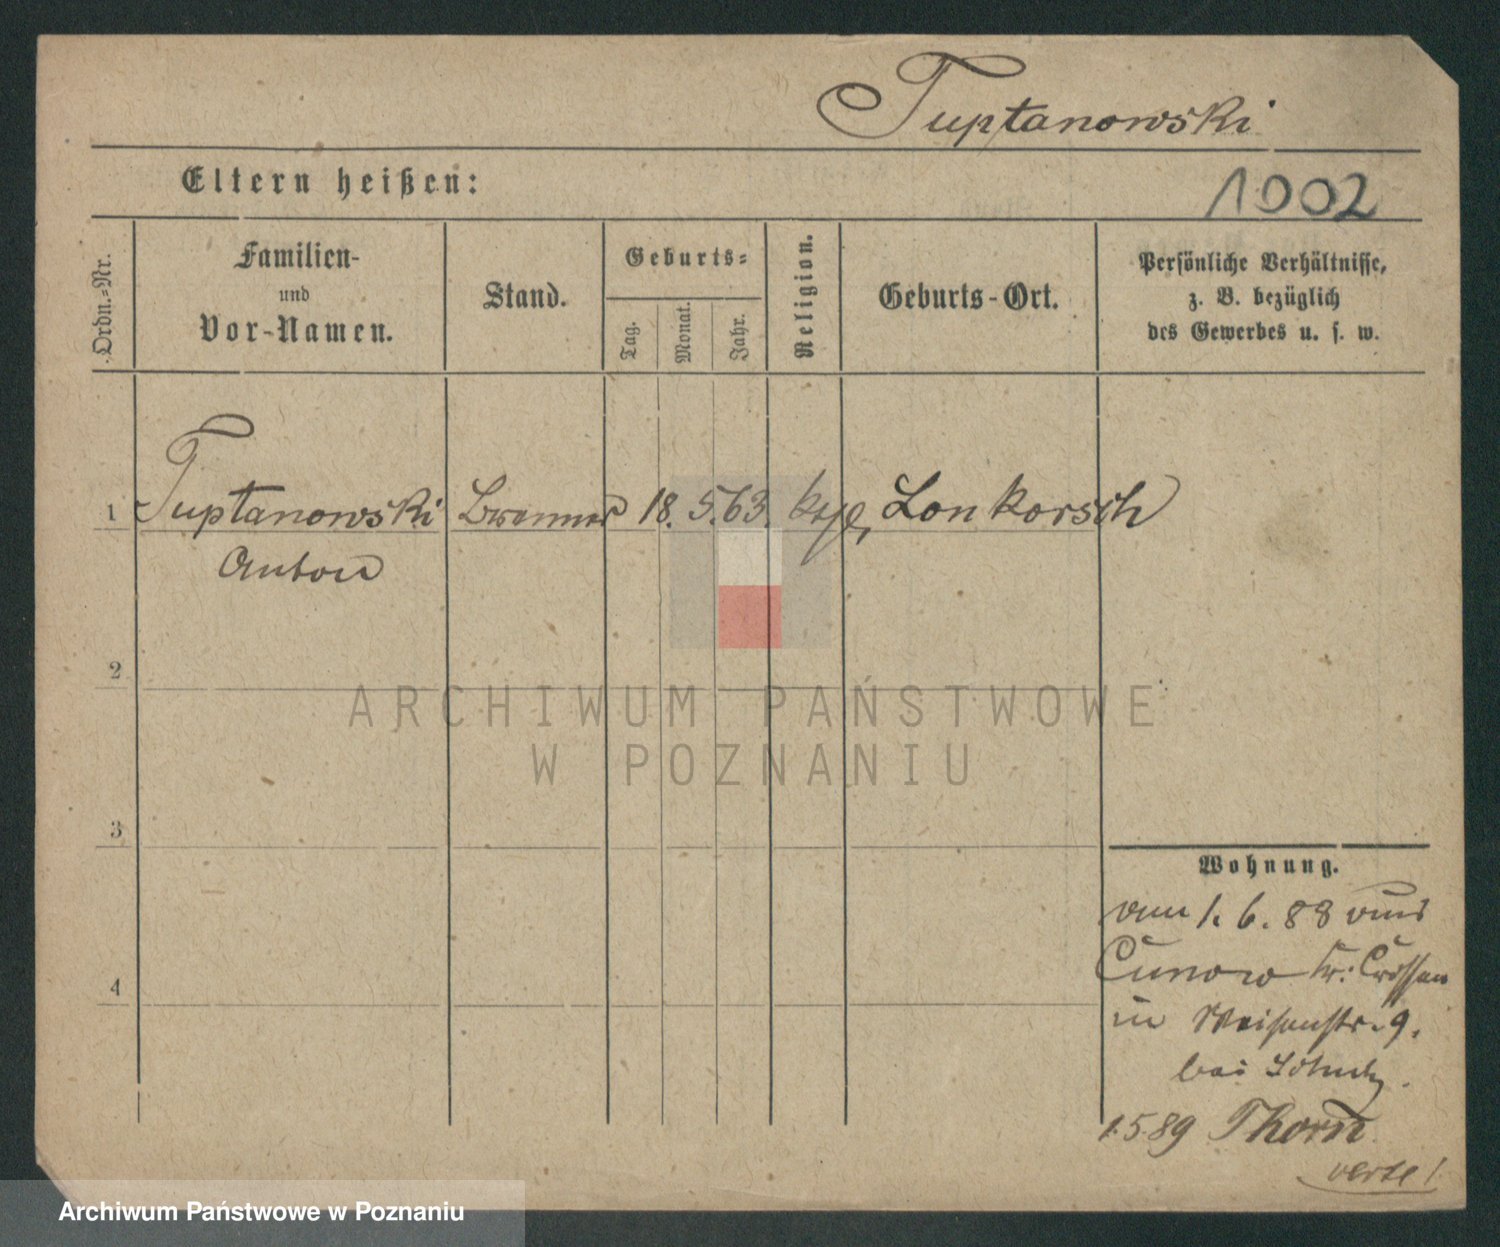 Tuptanowski
Eltern heißen:
1002
Ordn.-Nr.
Familien-
und
Vor-Namen.
Stand.
Geburts-
Tag.
Monat.
Jahr.
Religion.
Geburts-Ort.
Persönliche Verhältnisse,
z. B. bezüglich
des Gewerbes u. s. w.
1 Tuptanowski Brenner 18. 5. 63. Lonkorsch
Anton
2
3
4
ARCHIWUM PAŃSTWOWE
W POZNANIU
Wohnung.
am 1. 6. 88 aus
Cunow Kr. Crossen
in 9.
bei
1.5.89 Thorn
verte!
Archiwum Państwowe w Poznaniu